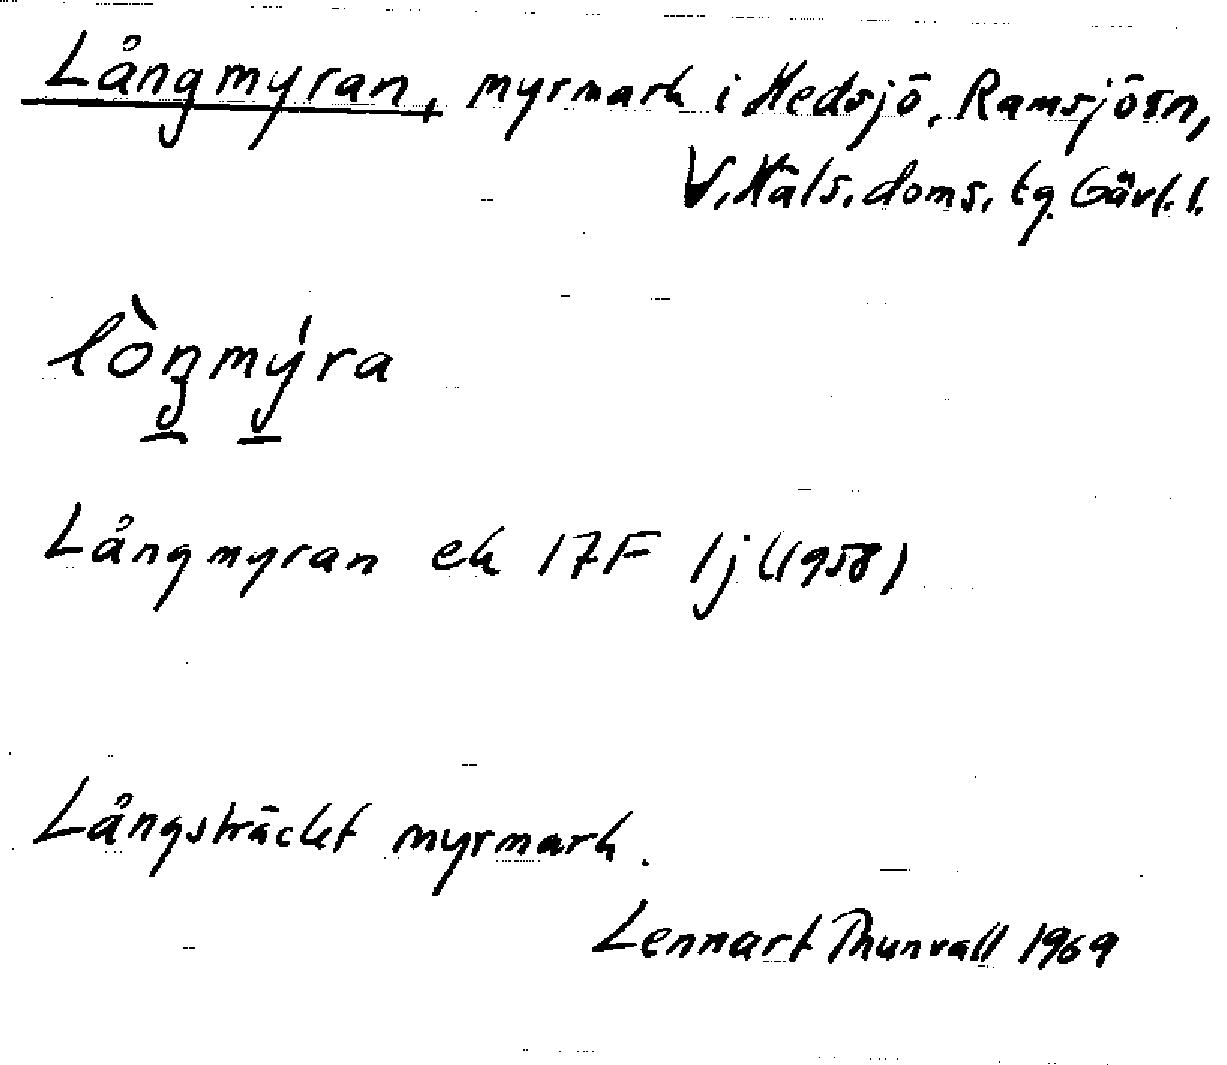 Långmyran, myrmark i Hedsjö, Ramsjösn,
V. Häls. doms. tg. Gävl. l.
lòŋmýra
Långmyran ek 17F 1j (1958)
Långsträckt myrmark.
Lennart Thunvall 1969